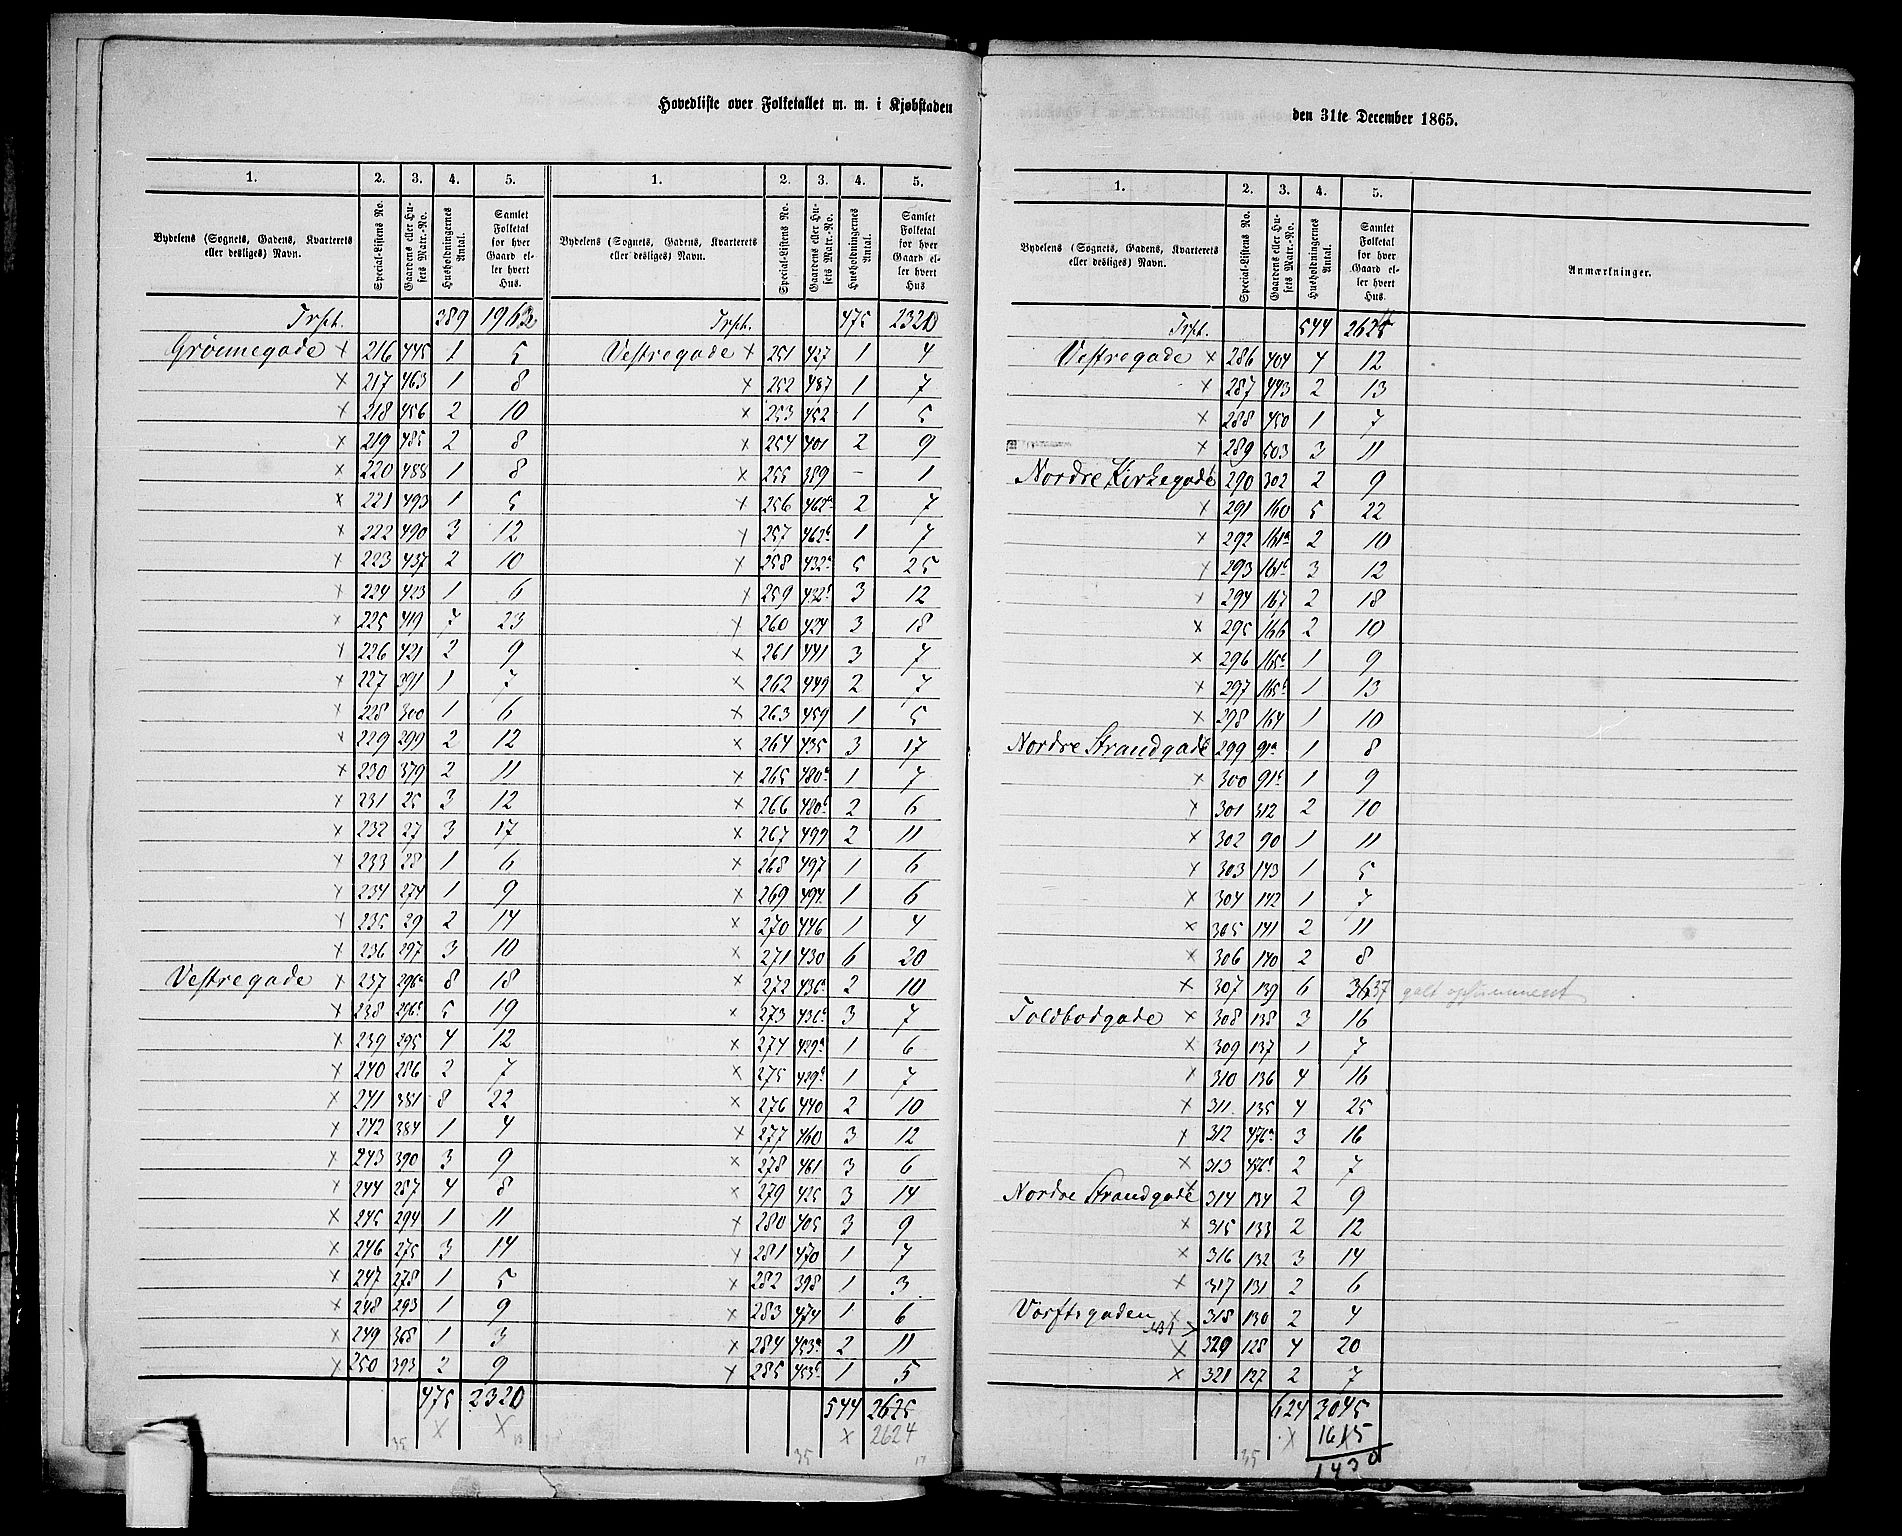 Hovedliste over Folketallet m. m. i Kjøbstaden
1. 2. 3. 4. 5.
Bydelens (Sognets, Gadens, Kvarterets eller desliges) Navn. Special-Listens No. Gaardens eller Husets Matr.-No. Husholdningernes Antal. Samlet Folketal for hver Gaard eller hvert Hus.
Trspt. 389 1963
Grønnegade × 216 445 1 5
× 217 463 1 8
× 218 456 2 10
× 219 485 2 8
× 220 488 1 8
× 221 493 1 5
× 222 490 3 12
× 223 437 2 10
× 224 423 1 6
× 225 419 7 23
× 226 421 2 9
× 227 391 1 7
× 228 300 1 6
× 229 299 2 12
× 230 379 2 11
× 231 25 3 12
× 232 27 3 17
× 233 28 1 6
× 234 274 1 9
× 235 29 2 14
× 236 297 3 10
Vestregade × 237 296a 8 18
× 238 296b 5 19
× 239 295 4 12
× 240 286 2 7
× 241 381 8 22
× 242 384 1 4
× 243 390 3 9
× 244 287 4 8
× 245 294 1 11
× 246 275 3 14
× 247 278 1 5
× 248 293 1 9
× 249 368 1 3
× 250 393 2 9
475 2320
35 × ×
1. 2. 3. 4. 5.
Bydelens (Sognets, Gadens, Kvarterets eller desliges) Navn. Special-Listens No. Gaardens eller Husets Matr.-No. Husholdningernes Antal. Samlet Folketal for hver Gaard eller hvert Hus
Trspt. 475 2320
Vestregade × 251 427 1 4
× 252 487 1 7
× 253 452 1 5
× 254 401 2 9
× 255 389 – 1
× 256 462a 2 7
× 257 462b 1 7
× 258 432a 5 25
× 259 432b 3 12
× 260 424 3 18
× 261 441 3 7
× 262 449 2 7
× 263 459 1 5
× 264 435 3 17
× 265 480a 1 7
× 266 480b 2 6
× 267 499 2 11
× 268 497 1 6
× 269 494 1 6
× 270 446 1 4
× 271 430 6 20
× 272 436a 2 10
× 273 436b 3 7
× 274 429a 1 6
× 275 429b 1 7
× 276 440 2 10
× 277 460 3 12
× 278 461 3 6
× 279 425 3 14
× 280 405 3 9
× 281 470 1 7
× 282 398 1 3
× 283 474 1 6
× 284 453a 2 11
× 285 453b 1 5
544 2625
× 2624
35
den 31te December 1865.
1. 2. 3. 4. 5.
Bydelens (Sognets, Gadens, Kvarterets eller desliges) Navn. Special-Listens No. Gaardens eller Husets Matr.-No. Husholdningernes Antal. Samlet Folketal for hver Gaard eller hvert Hus. Anmærkninger.
Trspt. 544 2625
Vestregade × 286 404 4 12
× 287 443 2 13
× 288 450 1 7
× 289 503 3 11
Nordre Kirkegade 290 302 2 9
× 291 160 5 22
× 292 161a 2 10
× 293 161b 3 12
× 294 167 2 18
× 295 166 2 10
× 296 165b 1 9
× 297 165b 1 13
× 298 164 1 10
Nordre Strandgade 299 91a 1 8
× 300 91b 1 9
× 301 312 2 10
× 302 90 1 11
× 303 143 1 5
× 304 142 1 7
× 305 141 2 11
× 306 140 2 8
× 307 139 6 36 37
Toldbodgade × 308 138 3 16
× 309 137 1 7
× 310 136 4 16
× 311 135 4 25
× 312 476a 3 16
× 313 476b 2 7
Nordre Strandgade × 314 134 2 9
× 315 133 2 12
× 316 132 3 14
× 317 131 2 6
Værftsgaden × 318 130 2 4
× 329 128 4 20
× 321 127 2 7
624 3045
× 1615
35 1430